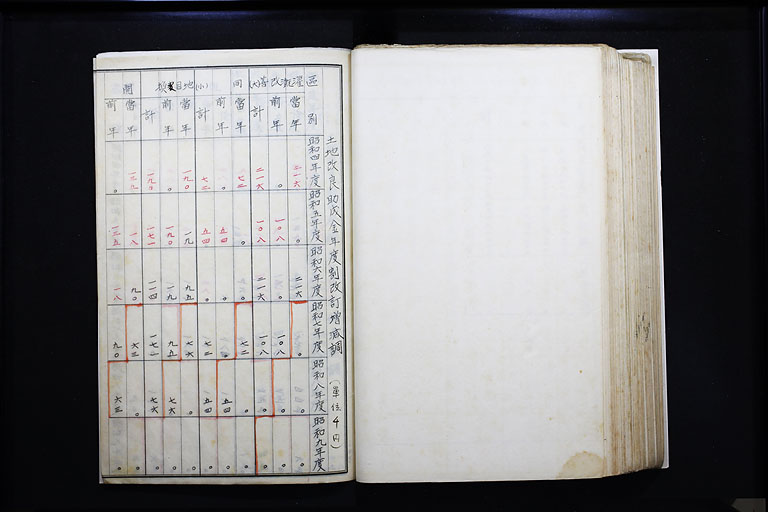 土地改良助成金年度別改訂増減調 (單位千円)
區別 昭和四年度 昭和五年度 昭和六年度 昭和七年度 昭和八年度 昭和九年度
灌漑改善(大)
當年 二一六 〇 二一六 〇 〇 〇
前年 〇 一〇八 〇 一〇八 〇 〇
計 二一六 一〇八 二一六 一〇八 〇 〇
同 (小)
當年 七二 〇 〇 七二 〇 〇
前年 〇 五四 〇 〇 五四 〇
計 七二 五四 〇 七二 五四 〇
地目變換
當年 一九〇 一九 九五 七六 〇 〇
前年 〇 一九〇 一九 九五 七六 〇
計 一九〇 一七一 一一四 一七一 七六 〇
開
當年 一三五 一八 九〇 六三 〇 〇
前年 〇 一三五 一八 九〇 六三 〇